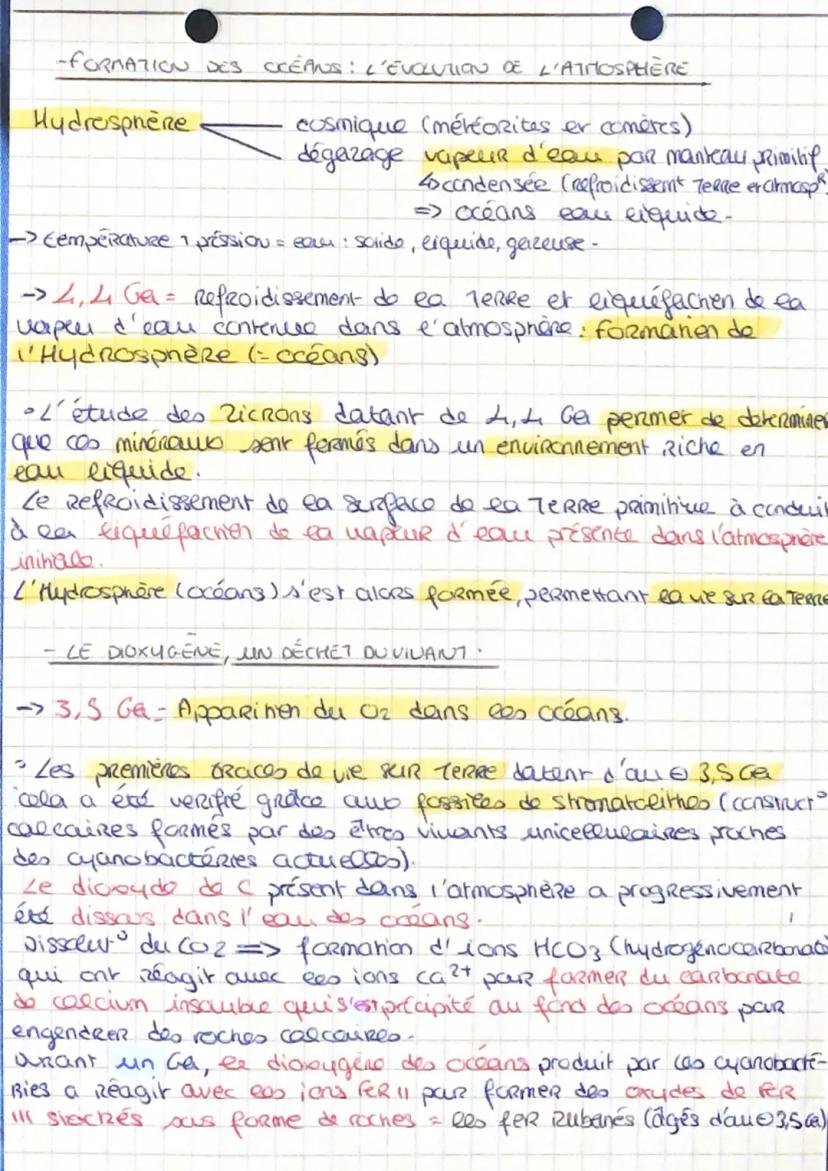 - FORMATION DES OCÉANS : L'ÉVOLUTION DE L'ATMOSPHÈRE
Hydrosphère cosmique (météorites et comètes)
dégazage vapeur d'eau par manteau primitif
↳ condensée (refroidissemt Terre et atmospR)
=> océans eau liquide -
-> température pression = eau : solide, liquide, gazeuse -
-> 4,4 Ga = Refroidissement de la Terre et liquéfaction de la
vapeu d'eau contenue dans l'atmosphère : formation de
l'Hydrosphère (= océans)
° L'étude des Zicrons datant de 4,4 Ga permet de déterminer
que ces minéraux sont formés dans un environnement riche en
eau liquide.
Le refroidissement de la surface de la Terre primitive à conduit
à la liquéfaction de la vapeur d'eau présente dans l'atmosphère
initiale.
L'Hydrosphère (océans) s'est alors formée, permettant la vie sur la Terre
- LE DIOXYGÈNE, UN DÉCHET DU VIVANT .
-> 3,5 Ga = Apparition du O2 dans les océans.
° Les premières traces de vie sur Terre datent d'au ⊖ 3,5 Ga
cela a été verifié grâce aux fossiles de stromatolithes (construct°
calcaires formés par des êtres vivants unicellulaires proches
des cyanobactéries actuelles).
Le dioxyde de C présent dans l'atmosphère a progressivement
été dissous dans l'eau des océans.
Dissolut° du CO2 => formation d'ions HCO3 (hydrogénocarbonate
qui ont réagit avec les ions Ca2+ pour former du carbonate
de calcium insoluble qui s'est précipité au fond des océans par
engendrer des roches calcaires -
Durant un Ga, le dioxygène des océans produit par les cyanobacté-
ries a réagit avec les ions FER II pour former des oxydes de FER
III stockés sous forme de roches = les fer rubanés (âgés d'au ⊖ 3,5 Ga)